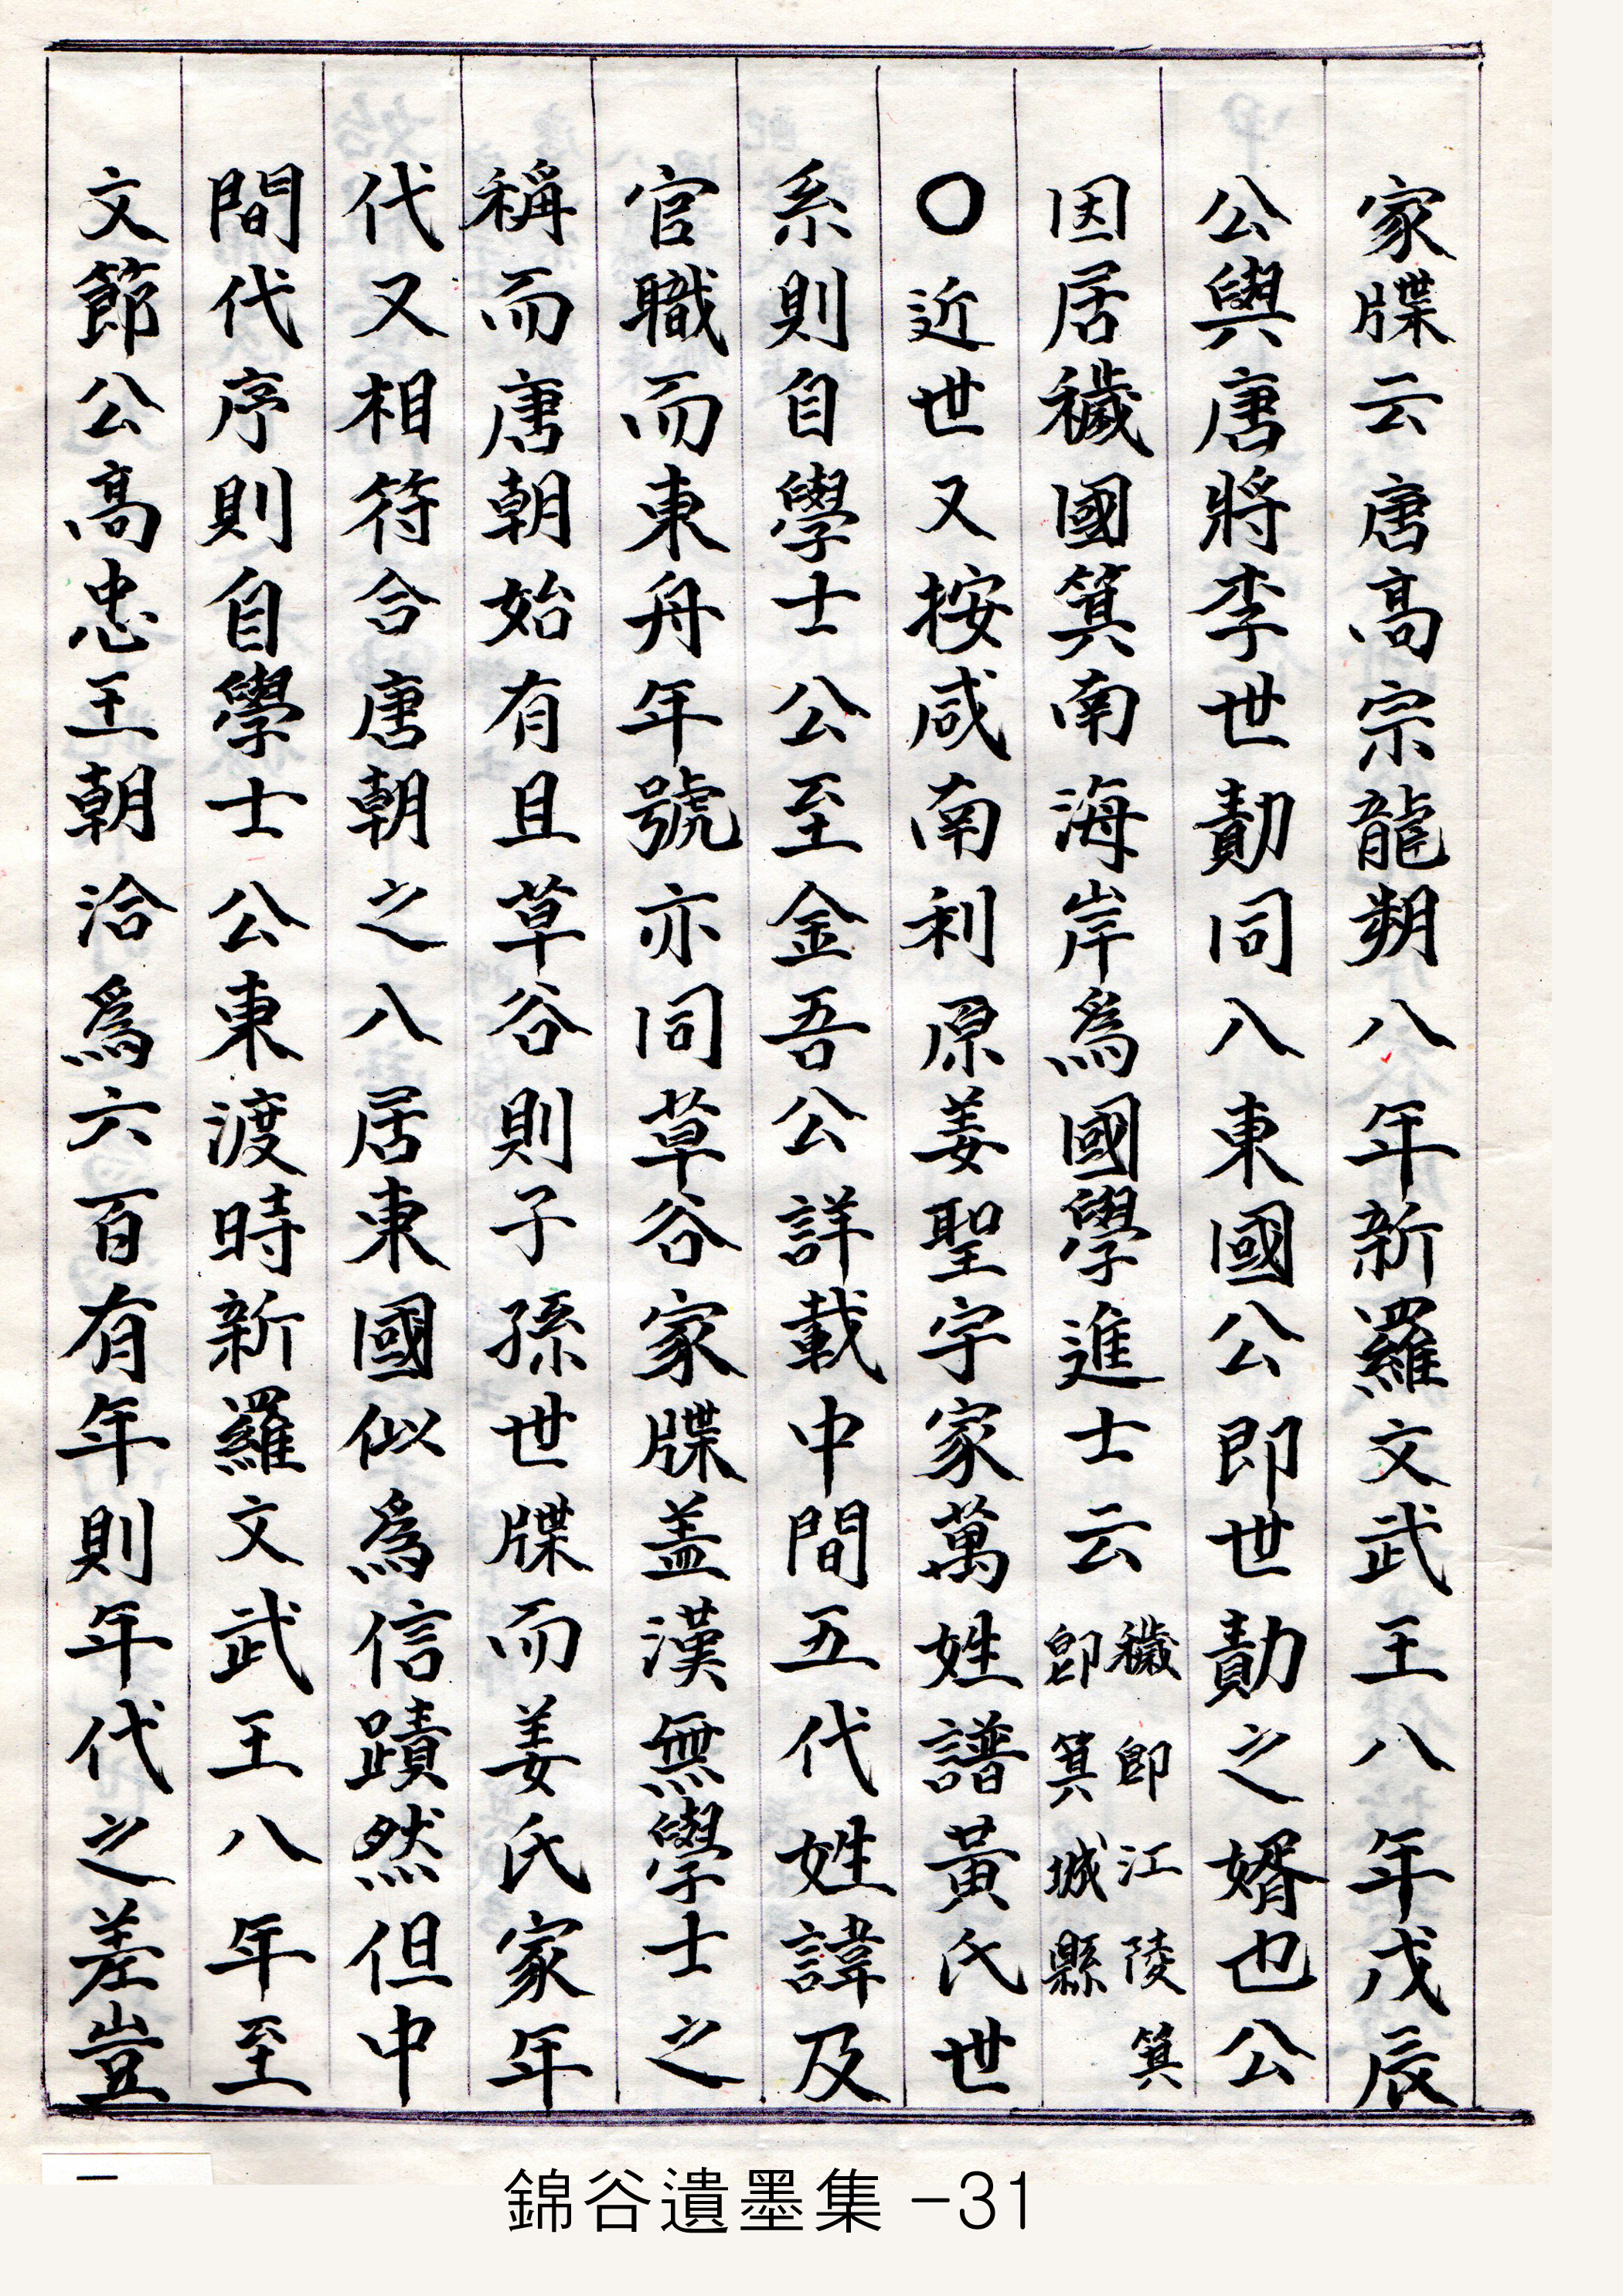 家牒云唐高宗龍朔八年新羅文武王八年戊辰
公與唐將李世勣同入東國公卽世勣之婿也公
因居穢國箕南海岸爲國學進士云穢卽江陵箕卽箕城縣
〇近世又按咸南利原姜聖宇家萬姓譜黃氏世
系則自學士公至金吾公詳載中間五代姓諱及
官職而東舟年號亦同草谷家牒盖漢無學士之
稱而唐朝始有且草谷則子孫世牒而姜氏家年
代又相符合唐朝之入居東國似爲信蹟然但中
間代序則自學士公東渡時新羅文武王八年至
文節公高忠王朝洽爲六百有年則年代之差豈
二
錦谷遺墨集 -31